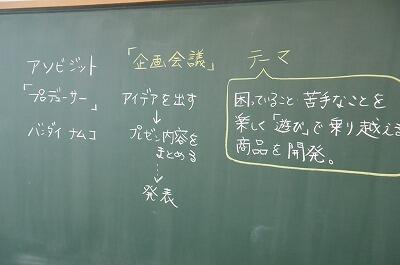 アソビジット
「プロデューサー」
バンダイ ナムコ
「企画会議」
アイデアを出す
↓
プレゼン内容を
まとめる
↓
発表
テーマ
困っていること・苦手なことを
楽しく「遊び」で乗り越える
商品を開発。